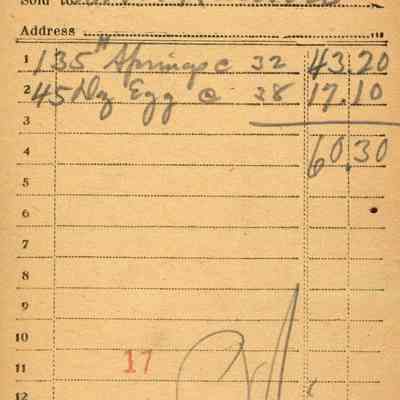 Sold to
Address
1 135 # Springs @ 32 43.20
2 45 Dz Egg @ 38 17.10
3
4 60.30
5
6
7
8
9
10
11 17
12